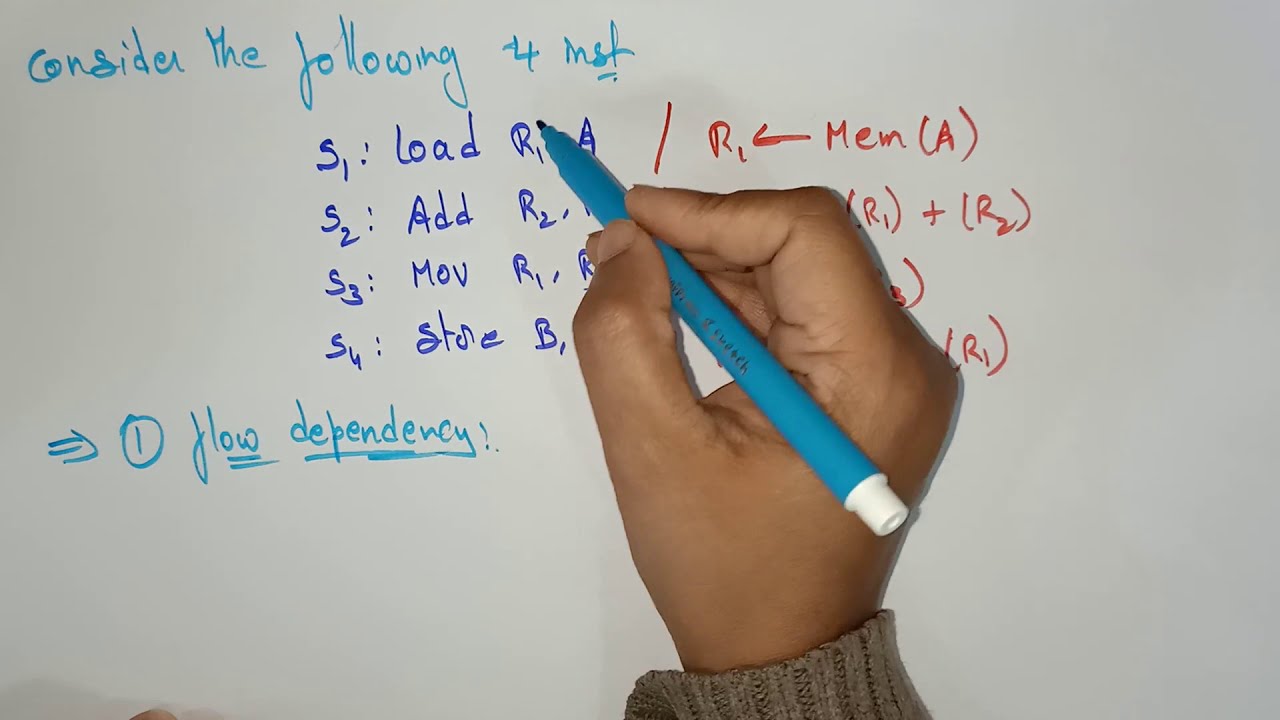 Consider the following 4 inst
S1: Load R1 A / R1 ← Mem(A)
S2: Add R2, (R1) + (R2)
S3: Mov R1, R
S4: Store B, (R1)
⇒ ① flow dependency: